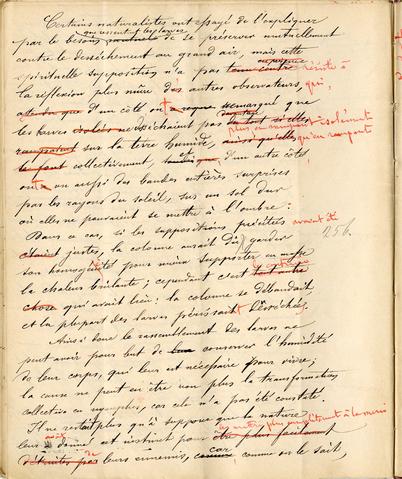 Certains naturalistes ont essayé de l'expliquer
qui ressent les larves
par le besoin de se préserver mutuellement
contre le dessèchement au grand air, mais cette
spirituelle supposition n'a pas résisté à
la réflexion plus mûre des autres observateurs, qui,
d'un côté ont remarqué que
les larves isolées ne
plus en rampant isolément
sur la terre humide, ainsi qu'elles qu'en rampant
le font collectivement, tandis que, d'un autre côté,
on a vu aussi des bandes entières surprises
par les rayons du soleil, sur un sol dur
où elles ne pouvaient se mettre à l'ombre:
Dans ce cas, si les suppositions précitées avaient été
étaient justes, la colonne aurait dû garder
256.
son homogénéité pour mieux supporter en masse
le contraire
la chaleur brûlante; cependant c'est tout autre
chose qui avait lieu: la colonne se débandait
et la plupart des larves périssait desséchées.
Ainsi donc le rassemblement des larves ne
peut avoir pour but de conserver l'humidité
de leur corps, qui leur est nécessaire pour vivre;
la cause ne peut en être non plus la transformation
collective en nymphes, car cela n'a pas été constaté.
Il ne restait plus qu'à supposer que la nature
leur avait donné cet instinct pour être plus facilement
détruites par leurs ennemis, car comme on le sait,